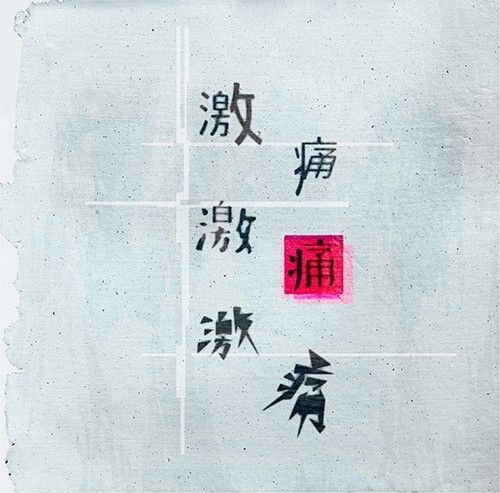 激痛
激痛
激痛